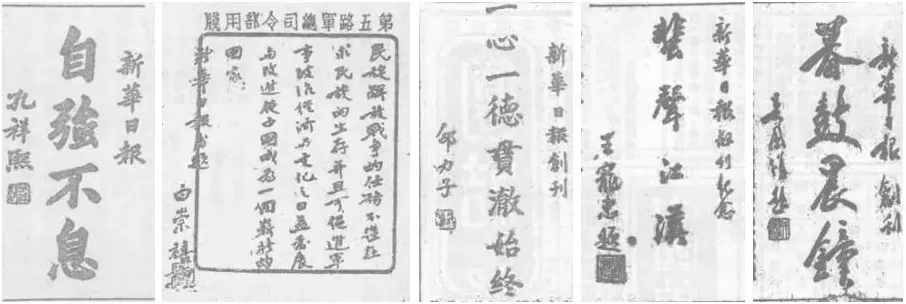 新華日報
自強不息
孔祥熙
第五路軍總司令部用牋
民族解放战爭的任務不僅在
求民族的生存并且可促進軍
事政治經濟与文化之日益發展
与改進使中國成為一個嶄新的
國家
新華日報
白崇禧
新華日報創刊
一心一德貫澈始終
邵力子
新華日報創刊紀念
蜚聲江漢
王寵惠題
新華日報創刊
暮鼓晨鐘